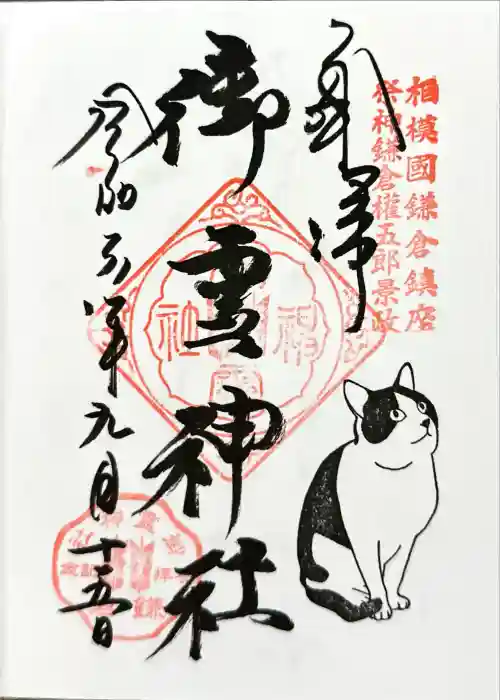 相模國鎌倉鎮座
祭神鎌倉權五郎景政
奉拝
御霊神社
令和元年九月十五日